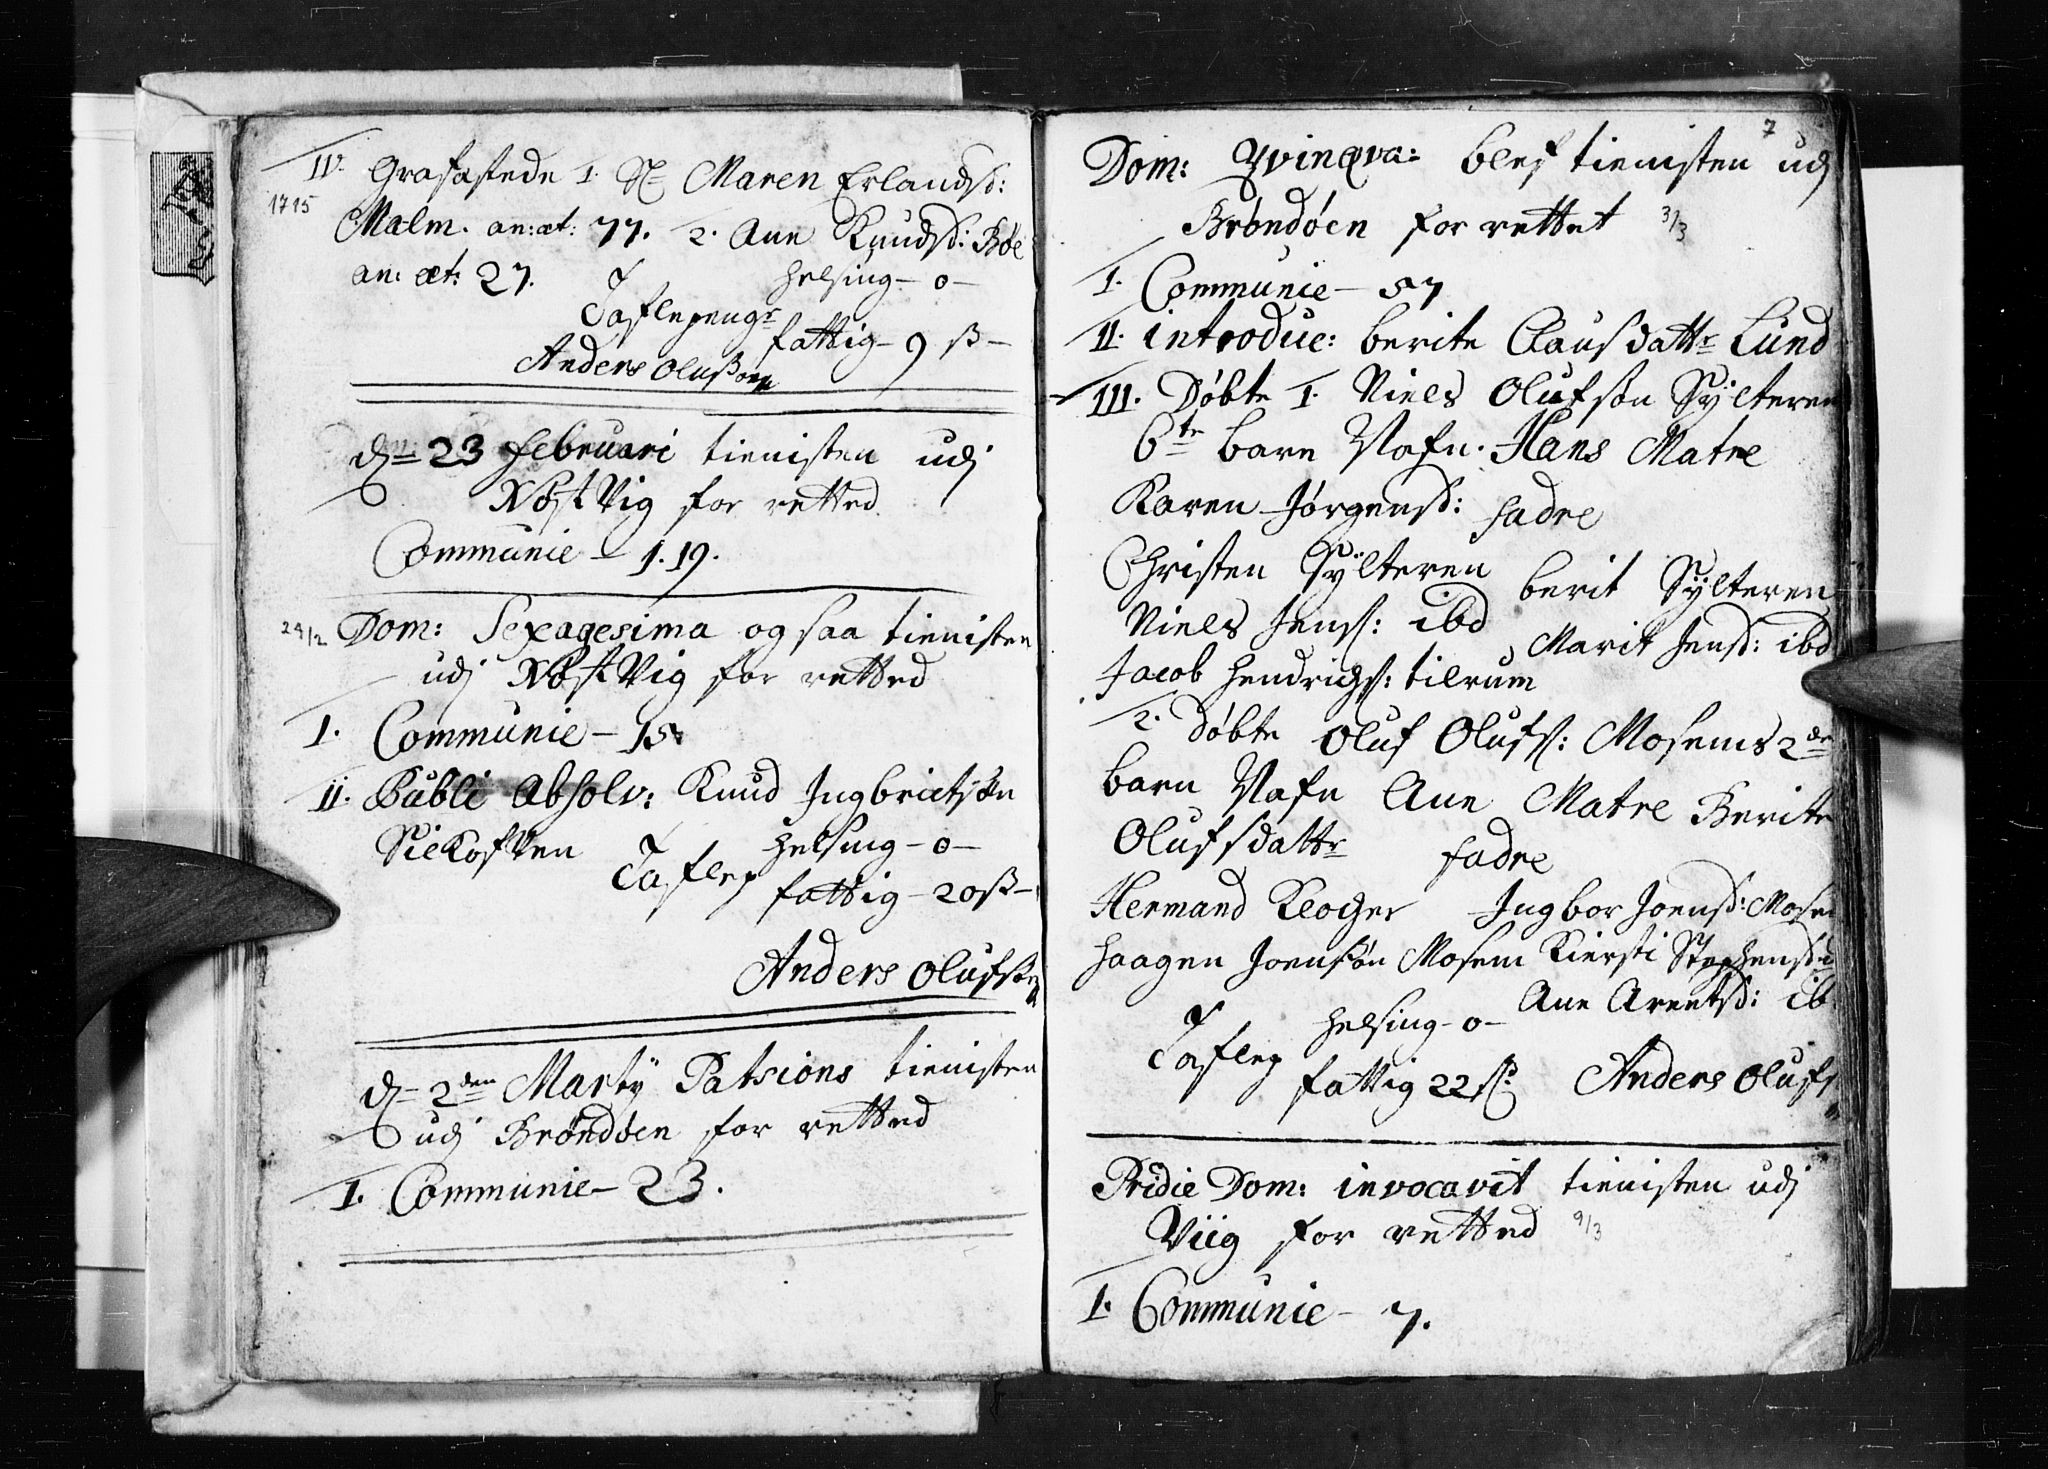 IV. Grafastede 1. Sl Maren Erlandsd:
1715
Malm. an: æt: 77. 2. Ane Knudsd: Bøe
an: æt: 27.
Taflepeng
helsing - o -
fattig - 9 ß -
Anders Olufsøn
dn 23 februari tienisten udj
NøstVig for retted
Communie - 1.19.
24/2 Dom: Sexagesima og saa tienisten
udj NøstVig for retted
I. Communie - 15
II. Publi Absolv: Knud Ingbrictsøn
Taflep
helsing - o -
fattig - 20 ß -
Anders Olufsøn
d 2den Martij Patsions tienisten
udj Brøndøen for retted
I. Communie - 23.
7
Dom: Qvinqva: blef tienisten udj
Brøndøen for rettet 3/3
I. Communie - 57
II. introduc: berite Clausdattr Lund
III. Døbte 1. Niels Olufsøn Sÿlteren
6te barn Nafn. Hans Matre
Karen Jørgensd: fadre
Christen Sÿlteren berit Sÿlteren
Niels Jens: ibd Marit Jensd: ibd
Jacob Hendrichs: tilrum
2. døbte Oluf Olufs: Mosems 2de
barn Nafn Ane Matre Berite
Olufsdattr fadre
Hermand Klocher Ingbor Joensd: Mosem
haagen Joensøn Mosem Kiersti Stephensd
Ane Arentsd: ib
Taflep
helsing - o -
fattig 22 ß
Anders Olufs
Pridie Dom: invocavit tienisten udj
Viig for retted 9/3
I. Communie - 7.